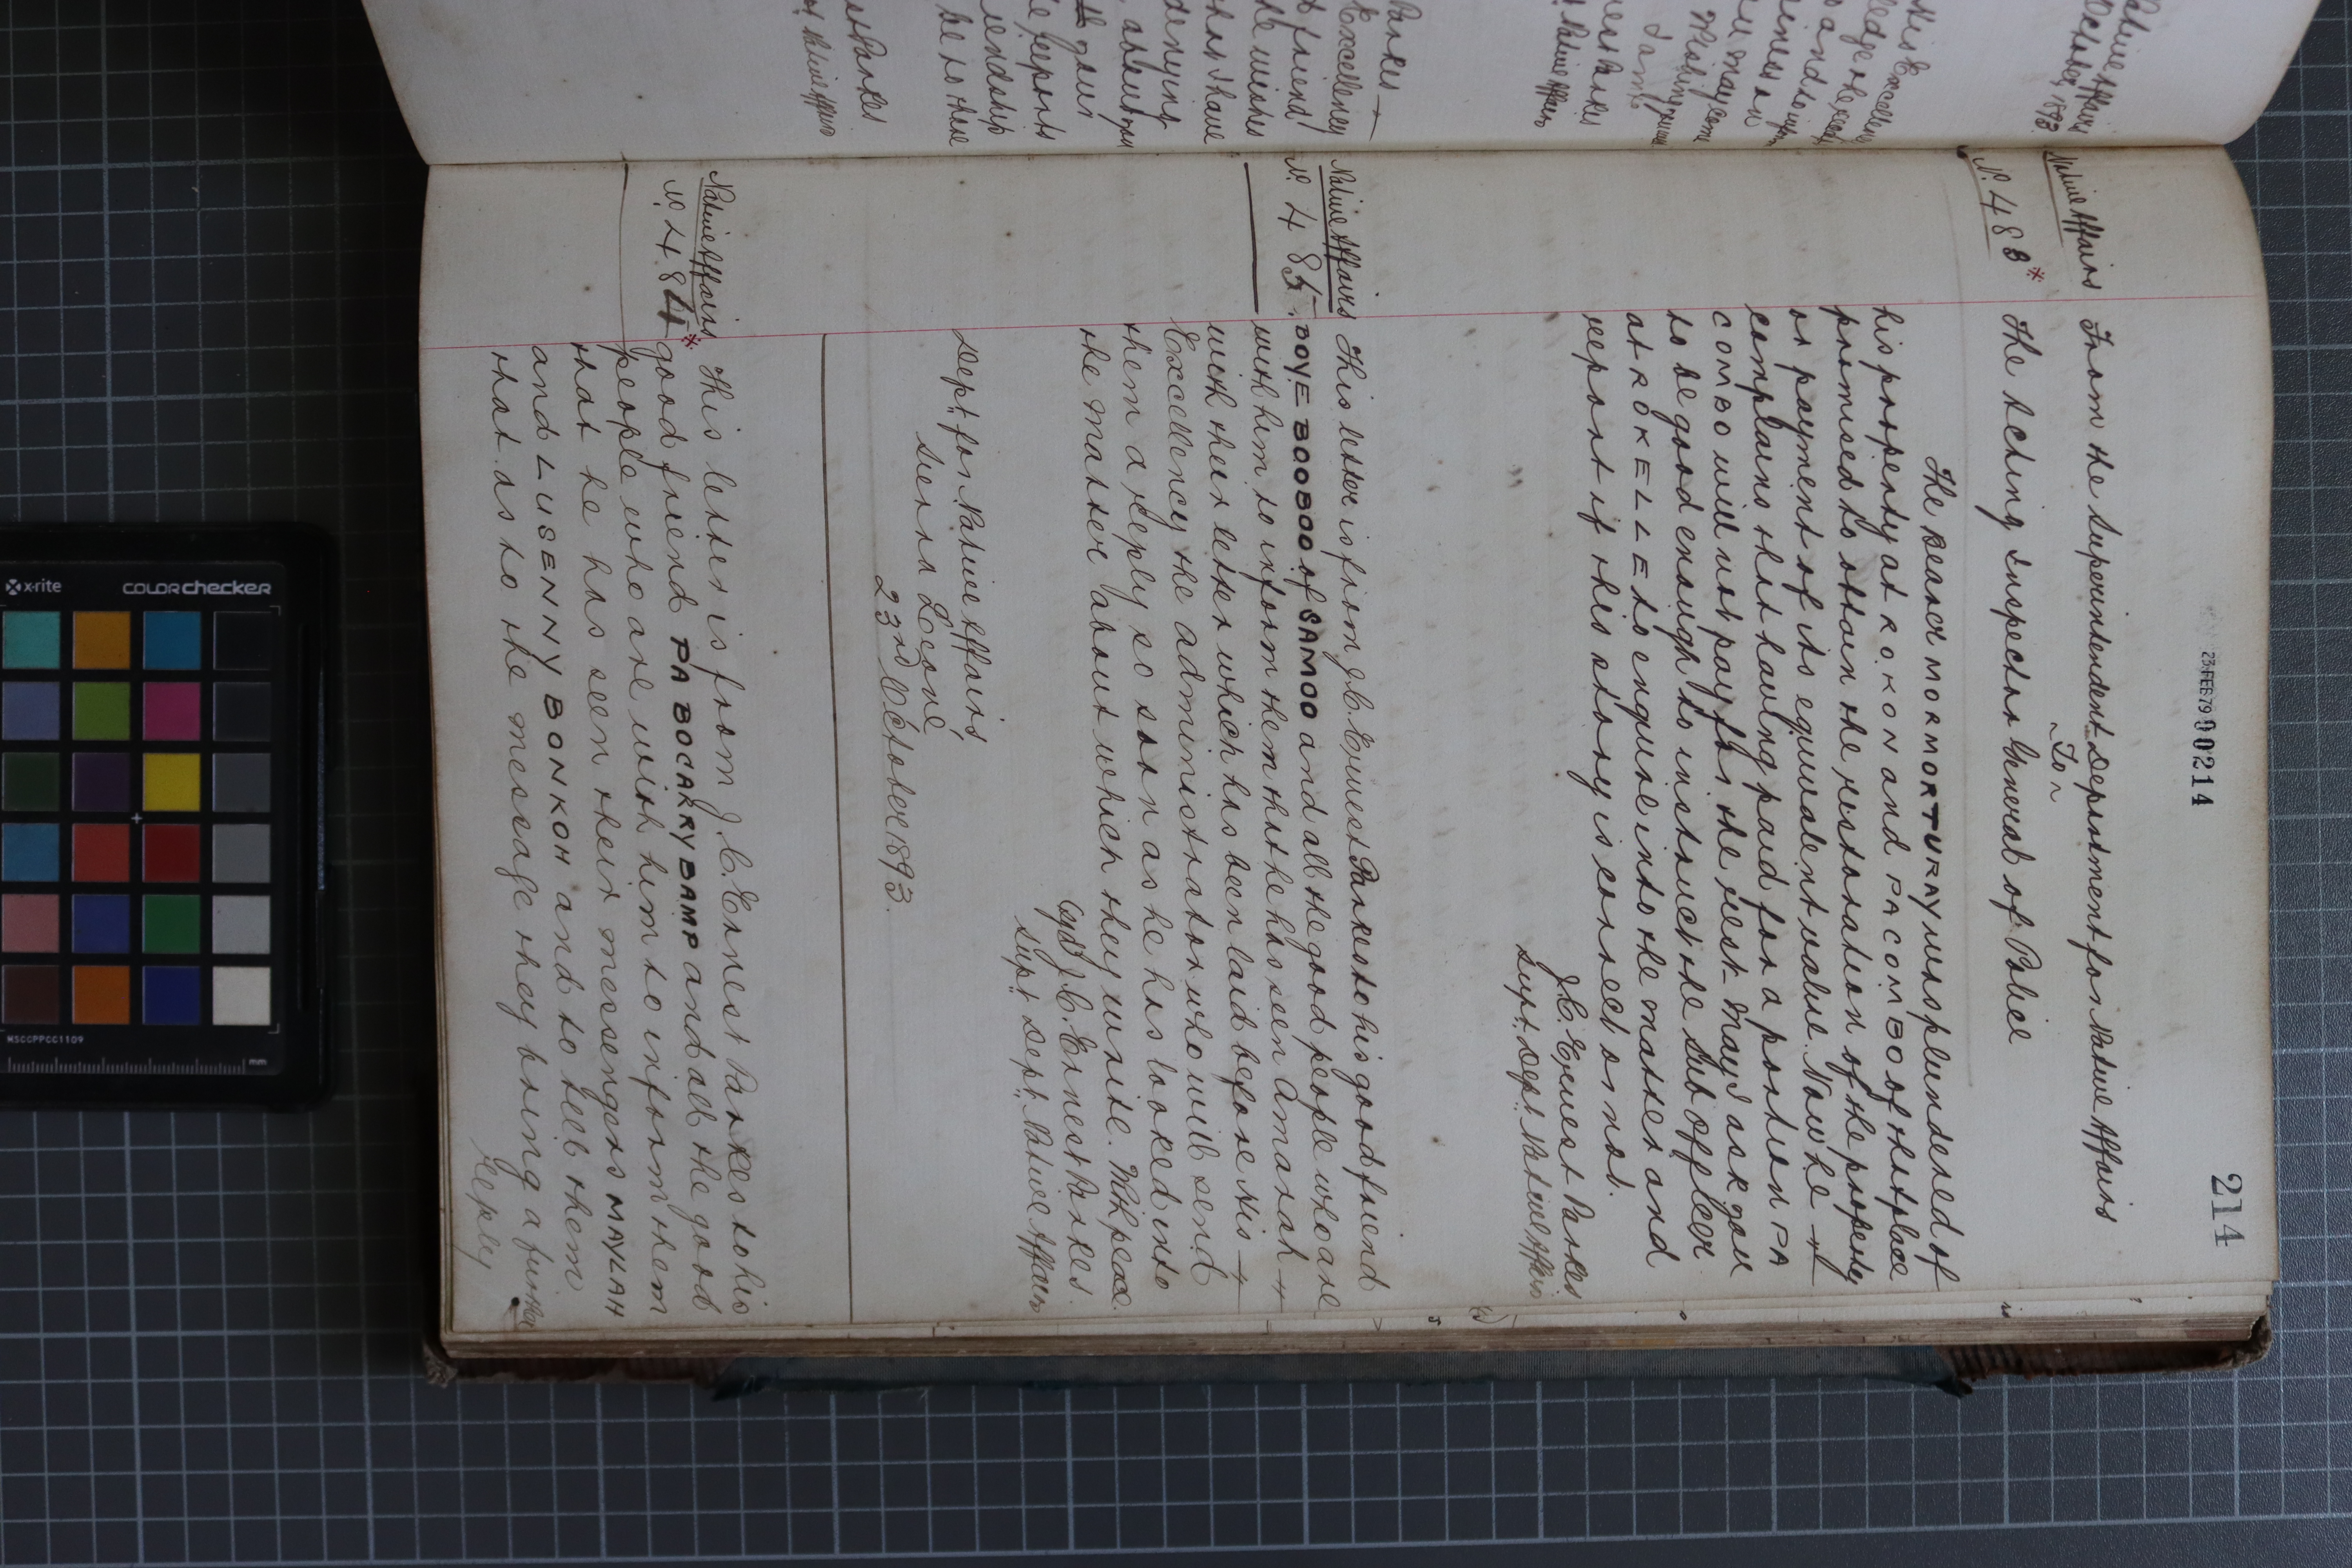 214
23 FEB 79 00214
Native Affairs
No. 488*
From the Superintendent Department for Native Affairs
To
The Acting Inspector General of Police
The bearer MORMORTURAY was plundered of
his property at ROKON and PA COMBO of that place
promised to obtain the restoration of the property
or payment of its equivalent value. Now he
complains that having paid for a portion PA
COMBO will not pay for the rest. May I ask you
to be good enough to instruct the Sub Officer
at ROKELLE to enquire into the matter and
report if this story is correct or not.
J.C. Ernest Parkes
Supt. Dept. Native Affairs
Native Affairs
No. 485
This letter is from J.C. Ernest Parkes to his good friend
DOYE BOOBOO of SAMOO and all the good people who are
with him to inform them that he has seen Amarah
with their letter which has been laid before His
Excellency the Administrator who will send
them a reply so soon as he has looked into
the matter about which they write.
J.C. Ernest Parkes
Supt. Dept. Native Affairs
Dept. for Native Affairs,
Sierra Leone
23rd October 1893.
Native Affairs
No. 484*
This letter is from J.C. Ernest Parkes to his
good friend PA BOCARRY BAMP and all the good
people who are with him to inform them
that he has seen their messengers MAYLAH
and LUSENNY BONKOH and to tell them
that as to the message they bring a further
reply
x-rite
colorchecker
MSCCPPCC1109
mm
Native Affairs
October 1893.
His Excellency
Parkes
Excellency
friend
he wishes
have
denying
about
reports
friendship
Parkes
Native Affairs